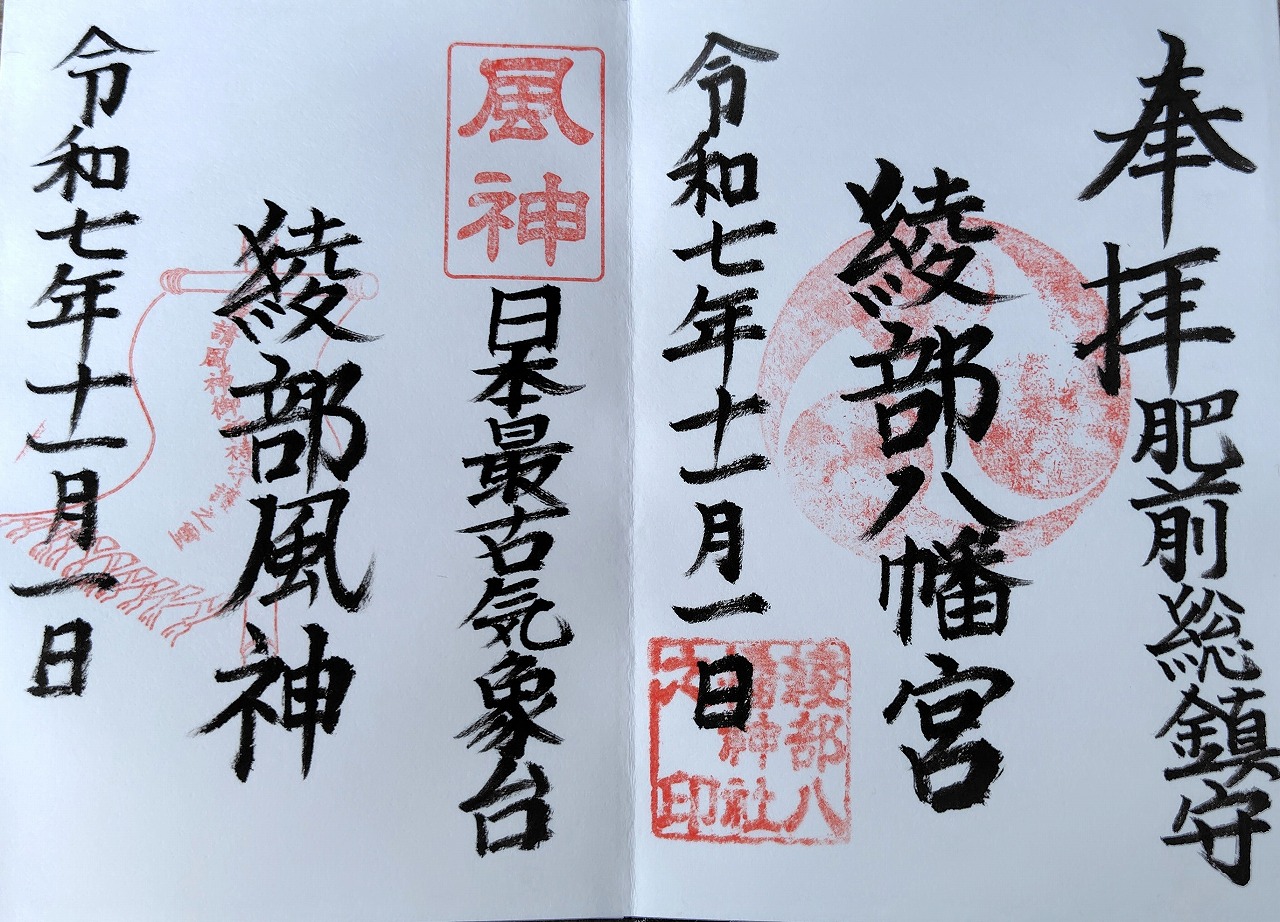 奉拝
肥前総鎮守
綾部八幡宮
令和七年十一月一日
綾部八
幡神社
之印
風神
日本最古気象台
綾部風神
令和七年十一月一日